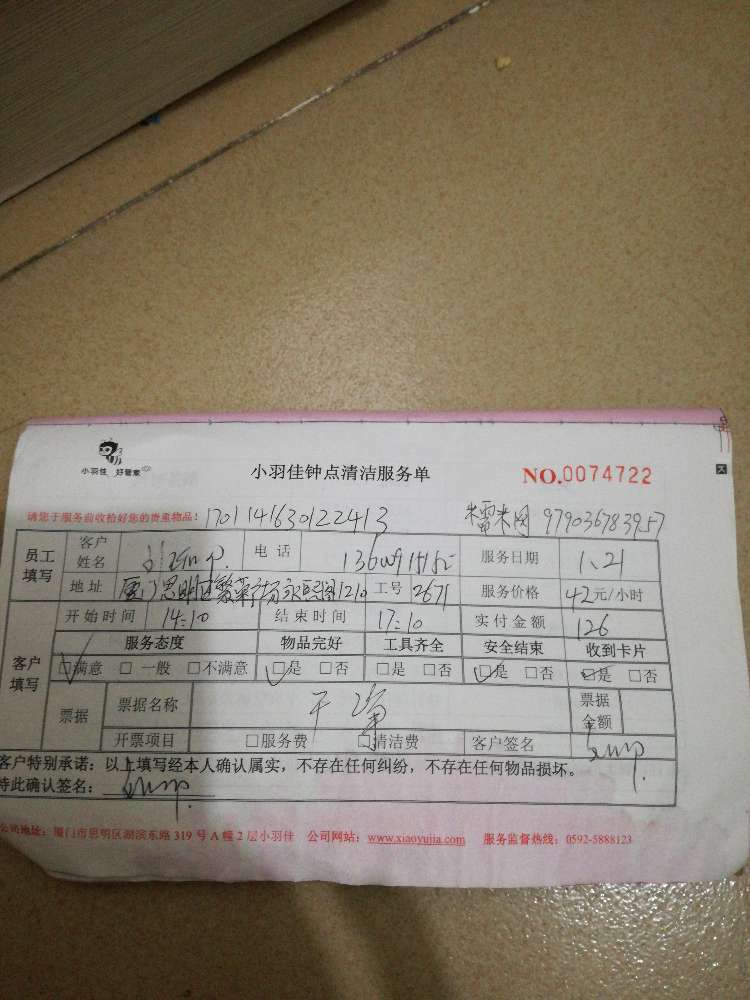 小羽佳 好管家
小羽佳钟点清洁服务单
NO.0074722
请您于服务前收拾好您的贵重物品！170114163012241３ 979036783957
员工填写 客户姓名 电话 服务日期 1.21
地址 工号 2671 服务价格 42元/小时
客户填写 开始时间 14:10 结束时间 17:10 实付金额 126
服务态度 物品完好 工具齐全 安全结束 收到卡片
☑满意 □一般 □不满意 ☑是 □否 □是 □否 ☑是 □否 ☑是 □否
票据 票据名称 干净 票据金额
开票项目 □服务费 □清洁费 客户签名
客户特别承诺：以上填写经本人确认属实，不存在任何纠纷，不存在任何物品损坏。
特此确认签名：
公司地址：厦门市思明区湖滨东路 319 号 A 幢 2 层小羽佳 公司网站：www.xiaoyujia.com 服务监督热线：0592-5888123